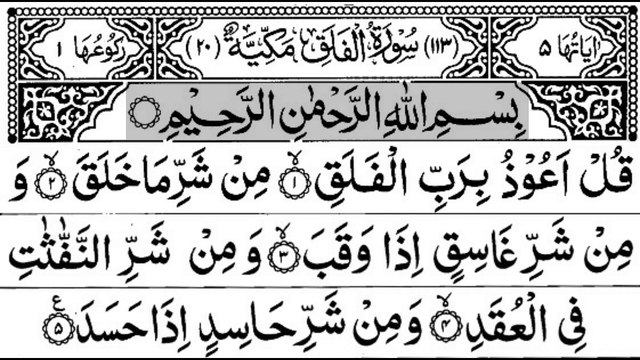 اٰيَاتُهَا ٥ (١١٣) سُوْرَةُ الْفَلَقِ مَكِّيَّةٌ (٢٠) رُكُوْعُهَا ١
بِسْمِ اللّٰهِ الرَّحْمٰنِ الرَّحِيْمِ
قُلْ اَعُوْذُ بِرَبِّ الْفَلَقِ ۙ‏﴿۱﴾ مِنْ شَرِّ مَا خَلَقَ ۙ‏﴿۲﴾ وَ
مِنْ شَرِّ غَاسِقٍ اِذَا وَقَبَ ۙ‏﴿۳﴾ وَ مِنْ شَرِّ النَّفّٰثٰتِ
فِى الْعُقَدِ ۙ‏﴿۴﴾ وَ مِنْ شَرِّ حَاسِدٍ اِذَا حَسَدَ ‏﴿۵﴾ ع